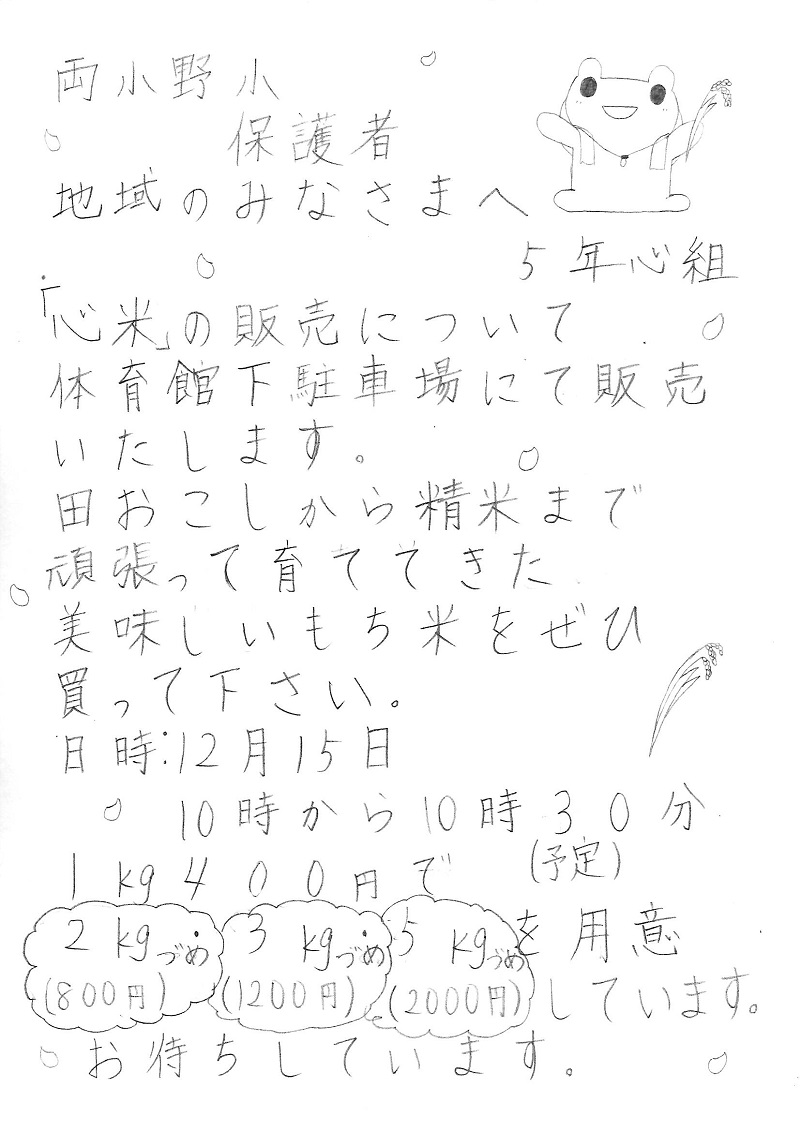 両小野小
保護者
地域のみなさまへ
5年心組
「心米」の販売について
体育館下駐車場にて販売
いたします。
田おこしから精米まで
頑張って育ててきた
美味しいもち米をぜひ
買って下さい。
日時:12月15日
10時から10時30分
(予定)
1kg400円で
2kgづめ 3kgづめ 5kgづめを用意
(800円) (1200円) (2000円)しています。
お待ちしています。